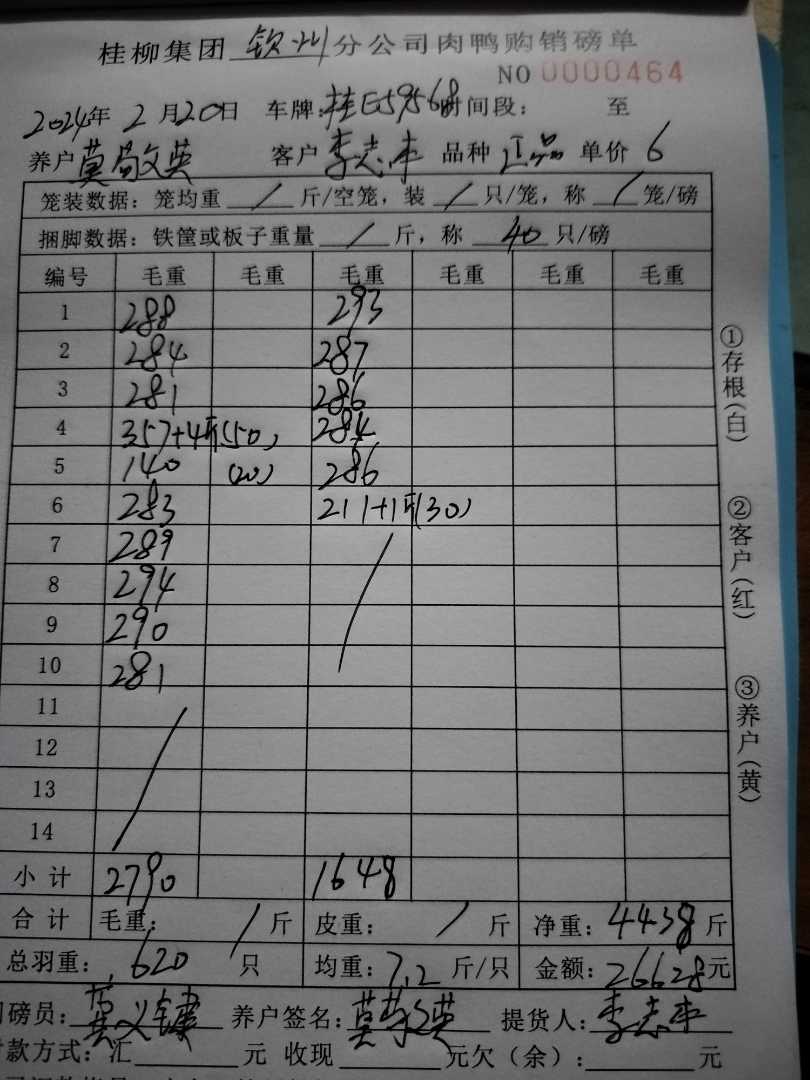 桂柳集团 钦州 分公司肉鸭购销磅单
NO 0000464
2024年 2月20日 车牌:桂E59568 时间段: 至
养户 莫敬英 客户 李志丰 品种 正品 单价 6
笼装数据:笼均重 / 斤/空笼,装 / 只/笼,称 / 笼/磅
捆脚数据:铁筐或板子重量 / 斤,称 40 只/磅
编号 毛重 毛重 毛重 毛重 毛重 毛重
1 288 293
2 284 287
3 281 286
4 357+4斤(50) 284
5 140 (20) 286
6 283 211+1斤(30)
7 289
8 294
9 290
10 281
11
12
13
14
小计 2790 1648
合计 毛重: / 斤 皮重: / 斤 净重: 4438 斤
总羽重: 620 只 均重: 7.2 斤/只 金额: 26628元
磅员: 莫义 养户签名: 莫敬英 提货人: 李志丰
款方式:汇 元 收现 元欠(余): 元
①存根(白)
②客户(红)
③养户(黄)